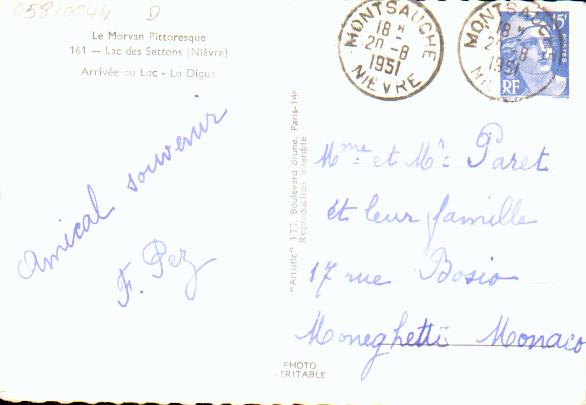 05820044 D
Le Morvan Pittoresque
161 — Lac des Settons (Nièvre)
Arrivée au Lac - La Digue
Amical souvenir
F. Pez
"Artistic" 177, Boulevard Brune, Paris-14e
Reproduction interdite
PHOTO
VERITABLE
MONTSAUCHE
18 H
20-8
1951
NIÈVRE
MONTSAUCHE
18 H
20-8
1951
15F
POSTES
RF
Mme et Mr Paret
et leur famille
17 rue Bosio
Moneghetti Monaco